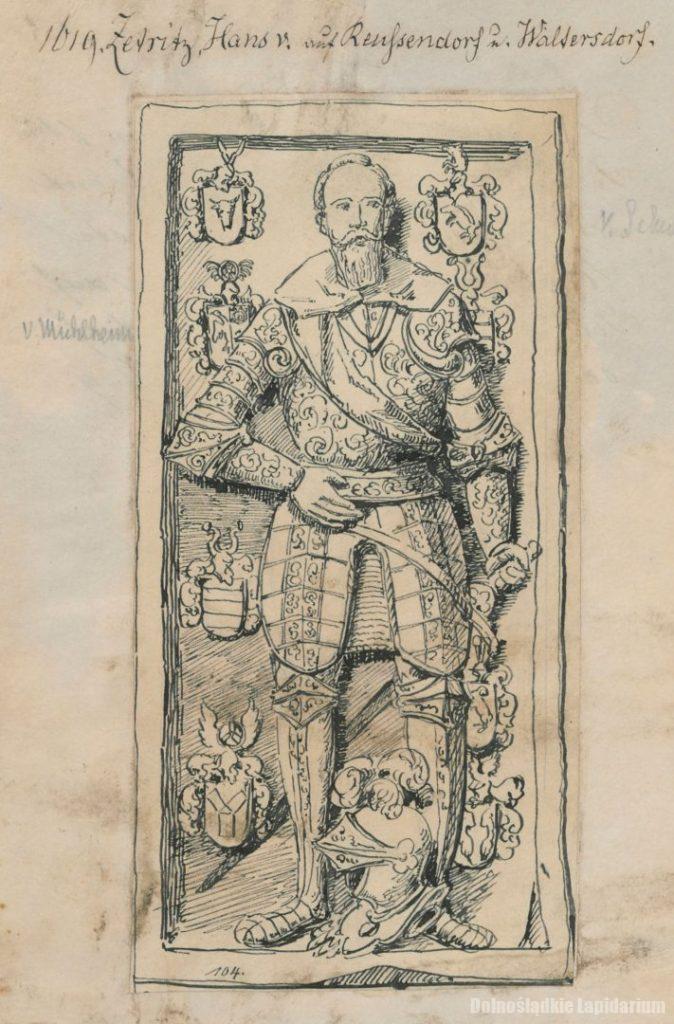 1619. Zetritz, Hans v. auf Reußendorf u. Waltersdorf.
v.
v Mühlheim
104.
Dolnośląskie Lapidarium